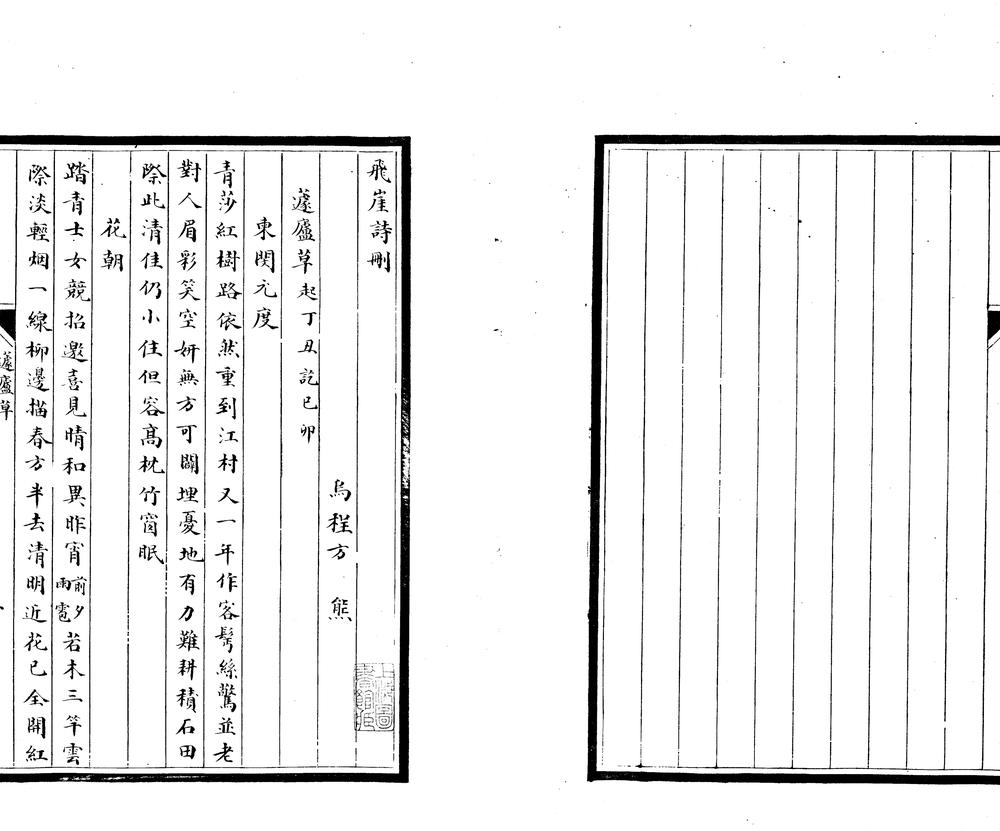 飛崖詩刪
烏程方 熊
蘧廬草起丁丑訖己卯
東閔元度
青莎紅樹路依然重到江村又一年作客鬢絲驚並老
對人眉彩笑空妍無方可闢埋憂地有力難耕積石田
際此清佳仍小住但容高枕竹窗眠
花朝
踏青士女競招邀喜見晴和異昨宵前夕雨雹若木三竿雲
際淡輕烟一線柳邊描春方半去清明近花已全開紅
蘧廬草
上海圖書館藏